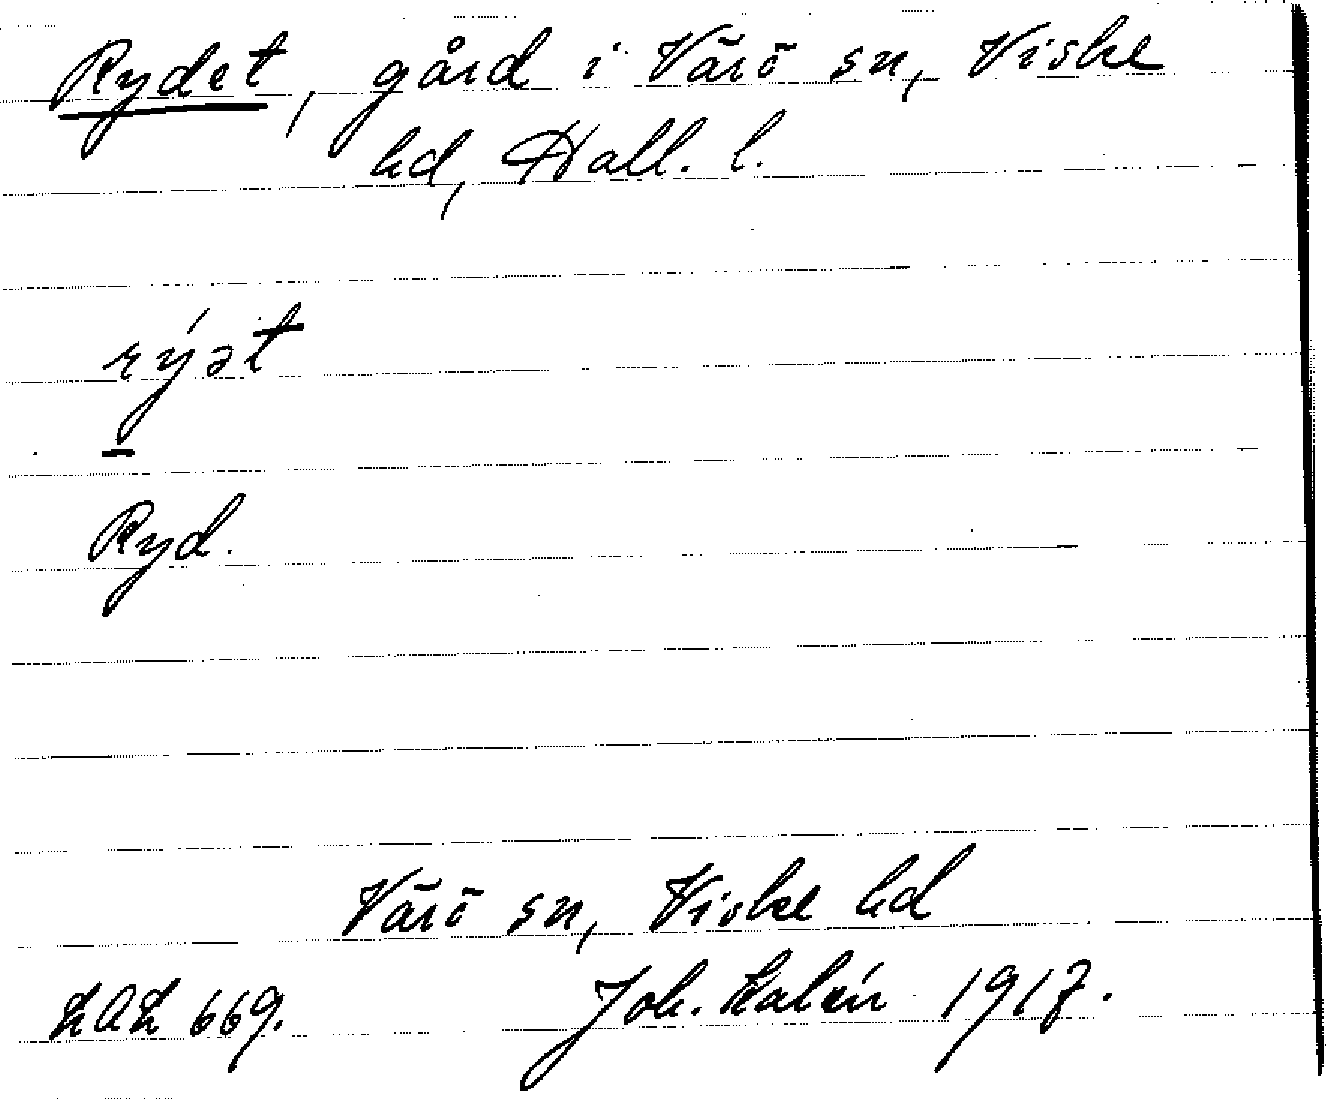 Rydet, gård i Värö sn, Viske
hd, Hall. l.
rýət
Ryd.
Värö sn, Viske hd
LAL 669. Joh. Kalén 1917.